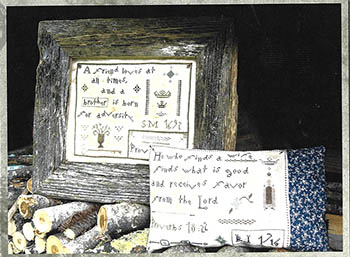 A friend loves at
all times,
and a
brother is born
for adversity
SM 1692
Prov
He who finds a
finds what is good
and receives favor
from the Lord
Proverbs 18:22